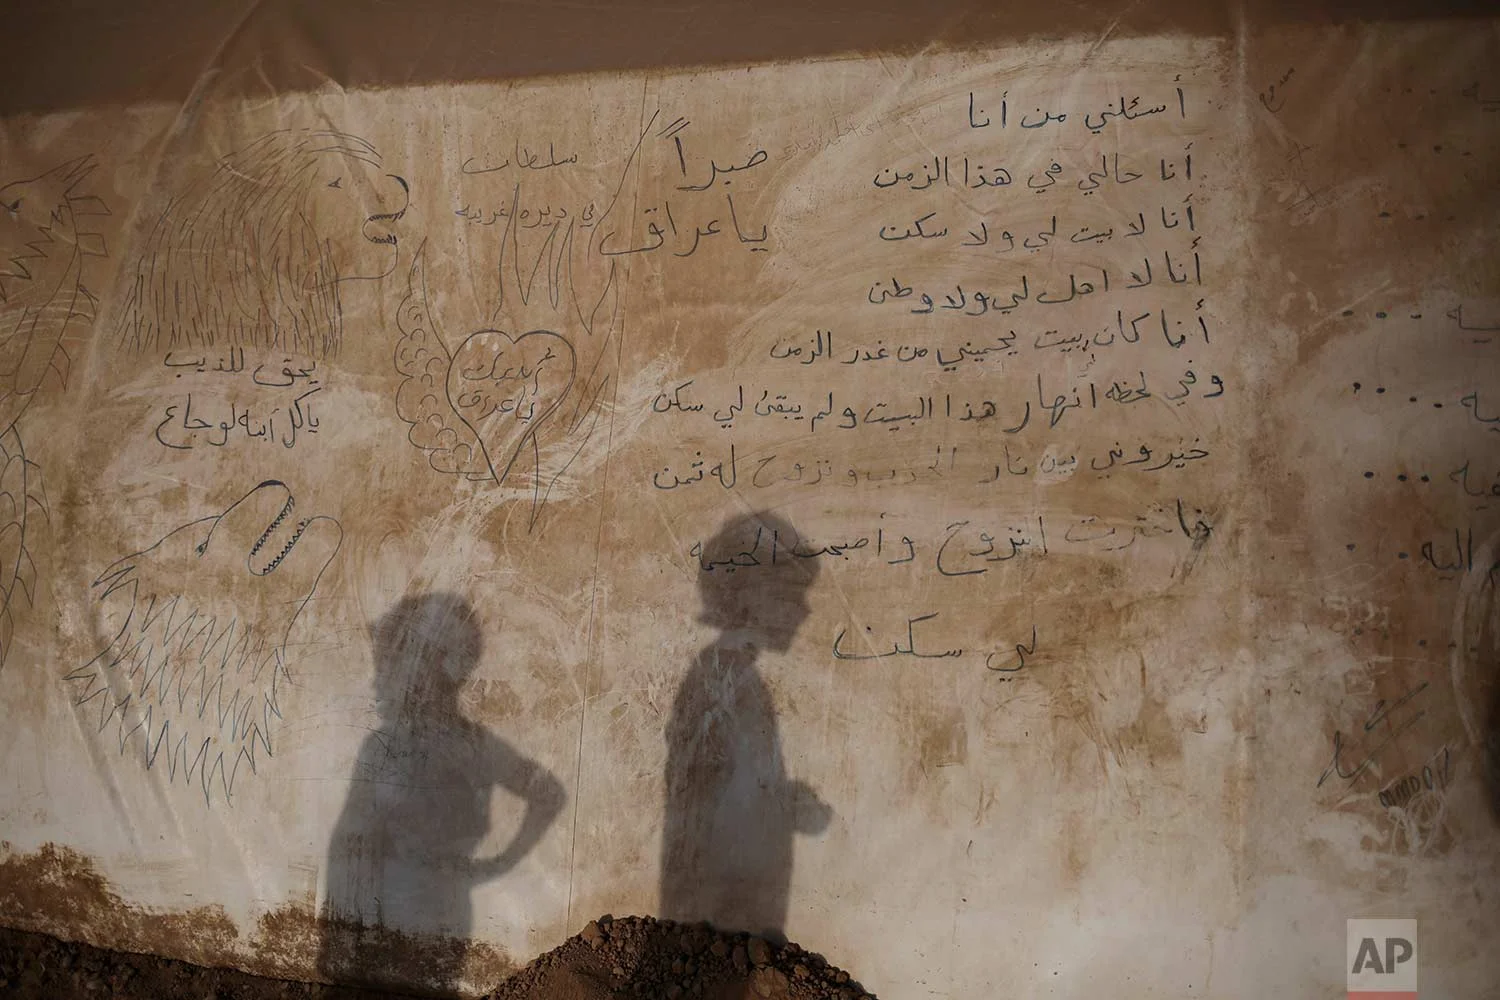 أسئلني من أنا
أنا حالي في هذا الزمن
أنا لا بيت لي ولا سكن
أنا لا اهل لي ولا وطن
أنا كان بيت يحميني من غدر الزمن
وفي لحظه انهار هذا البيت ولم يبقئ لي سكن
خيروني بين نار الحرب ونزوح له ثمن
فاخترت انزوح وأصبحت الخيمه
لي سكن
صبراً
ياعراق
سلطان
في ديره غريبه
ياعراق
يحق للذيب
ياكل أبنه لو جاع
AP